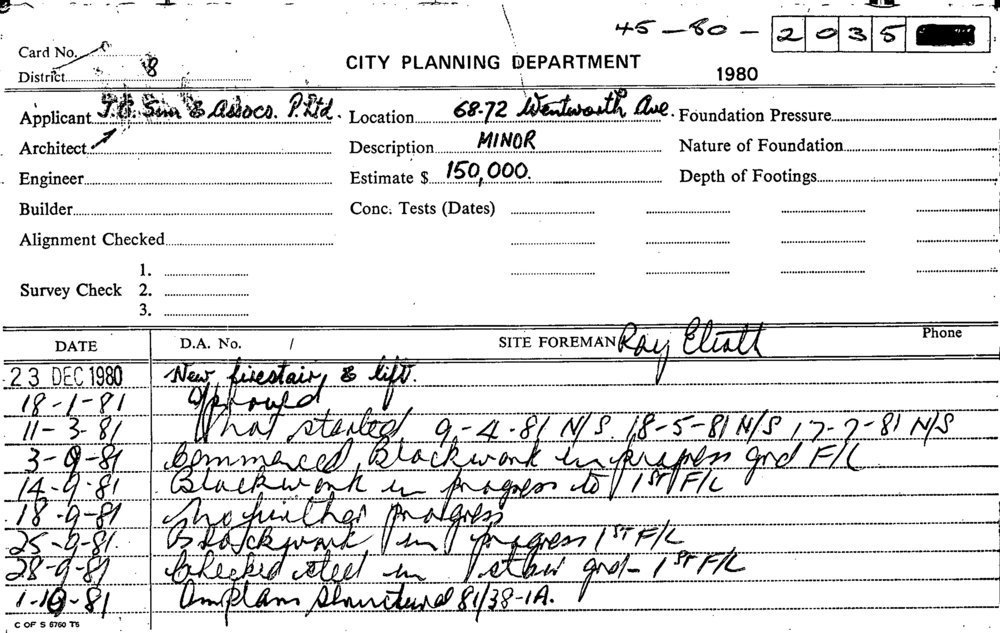 45-80-2035
Card No.
District 8
CITY PLANNING DEPARTMENT
1980
Applicant J.O. Sim & Assocs. P. Ltd. Location 68.72 Wentworth Ave. Foundation Pressure
Architect Description MINOR Nature of Foundation
Engineer Estimate $ 150,000. Depth of Footings
Builder Conc. Tests (Dates)
Alignment Checked
1.
Survey Check 2.
3.
DATE D.A. No. / SITE FOREMAN Ray Eliott Phone
23 DEC 1980 New firestair & lift.
18-1-81 Approved
11-3-81 not started 9-4-81 N/S 18-5-81 N/S 17-7-81 N/S
3-9-81 Commenced Blockwork in progress grd F/L
14-9-81 Blockwork in progress to 1ST F/L
18-9-81 No further progress
25-9-81 Blockwork in progress 1ST F/L
28-9-81 Checked steel in stair grd-1ST F/L
1-10-81 Amplans Structural 81/38-1A.
C OF S 6760 T5